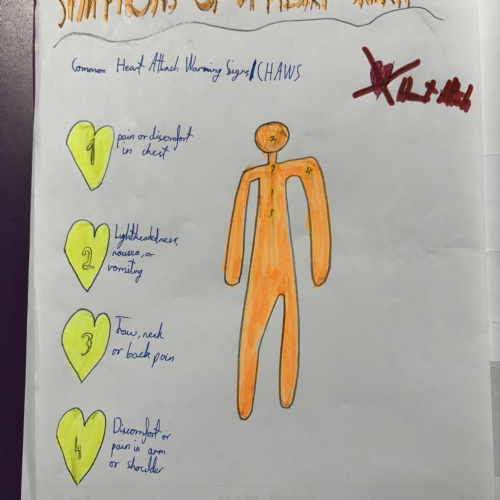 SYMPTOMS OF A HEART ATTACK
Common Heart Attack Warning Signs/CHAWS
Heart Attack
1
pain or discomfort
in chest
2
Lightheadedness,
nausea, or
vomiting
3
Jaw, neck
or back pain
4
Discomfort or
pain in arm
or shoulder
2
3
4
1
5